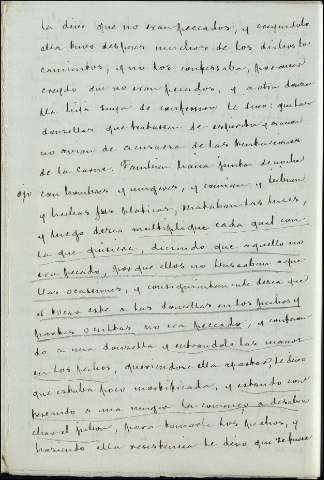 la dixo que no eran peccados, y creyendolo
ella tuvo despues muchos de los dichos to
camientos, y no los confessaba, por aver
creydo que no eran pecados, y a otra donze
lla hija suya de confession le dixo: que las
donzellas que tratavan de espiritu y oracion
no avian de acusarse de las tentaciones
de la carne. Tambien hacia juntas de noche
ojo con hombres y mugeres, y comian y bebian
y hacian sus platicas, mataban las luces,
y luego decia multiplique cada qual con
la que quisiese, diciendo que aquello no
era pecado, porque ellos no buscaban aque
llas ocasiones, y consiguientemente decia que
el tocar este a las donzellas en los pechos y
partes ocultas no era peccado, y confesan
do a una donzella y entrandole las manos
en los pechos, queriendose ella apartar, le dixo
que estaba poco mortificada, y estando con
fesando a una muger la comenzo a desabro
char el jubon, para tomarle los pechos, y
haciendo ella resistencia le dixo que se fuese